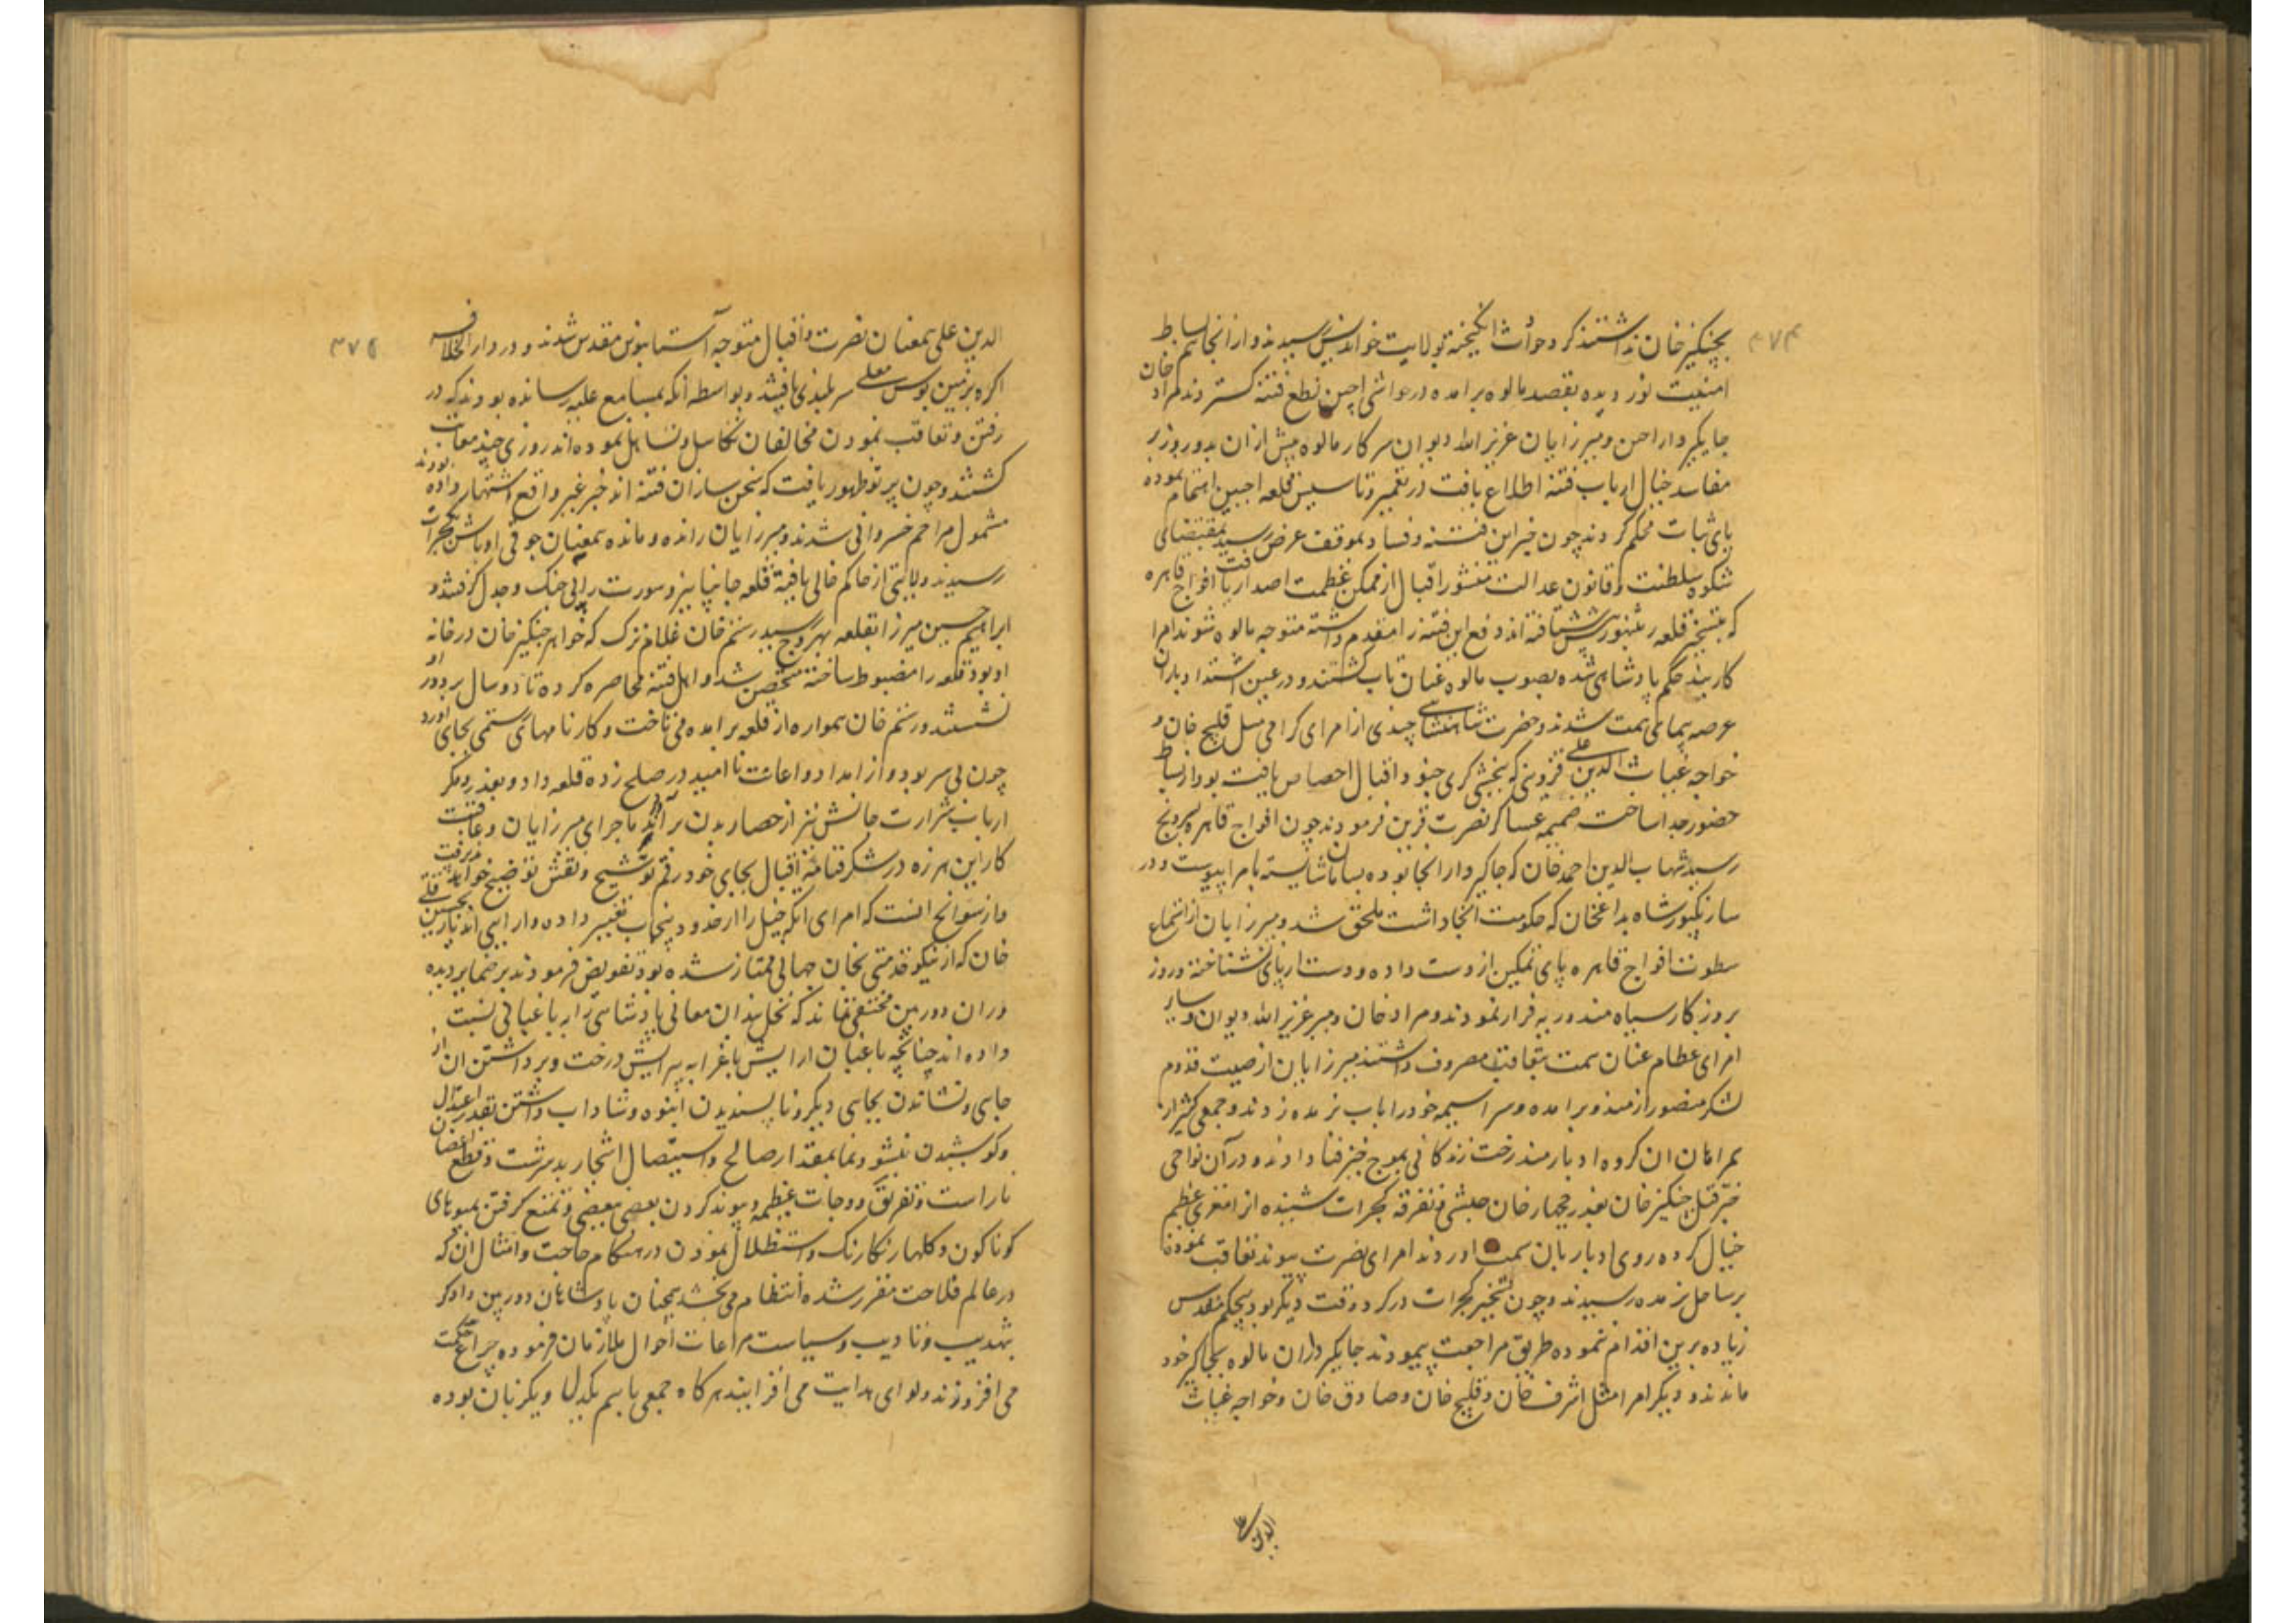 ۴۷۴
بچنگیز خان نداشتند گرد حوادث انگیخته بولایت خواندیس رسیدند و از انجا بساط
امنیت نوردیده بقصد مالوه برامده در حواشی اجین نطع فتنه گستردند مراد خان
جایگیردار اجین و میرزایان عزیز الله دیوان سرکار مالوه پیش ازان بدو روز بر
مفاسد خیال ارباب فتنه اطلاع یافت در تعمیر و تاسیس قلعه اجین اهتمام نموده
پای ثبات محکم کردند چون خبر این فتنه و فساد بموقف عرض رسید بمقتضای
شکوه سلطنت و قانون عدالت منشور اقبال از ممکن عظمت اصدار یافت افواج قاهره
که بتسخیر قلعه رنتنبور پیش شتافته اند دفع این فتنه را مقدم داشته متوجه مالوه شوند امرا
کاربند حکم پادشاهی شده بصوب مالوه عنان تاب گشتند و در عین اشتداد باران
عرصه پیمای همت شدند و حضرت شاهنشاهی چندی از امرای گرامی مثل قلیچ خان و
خواجه غیاث الدین علی قزوینی که ببخشی گری جنود اقبال اختصاص یافت بود از بساط
حضور جدا ساخت ضمیمه عساکر نصرت قرین فرمودند چون افواج قاهره بسرونج
رسید شهاب الدین احمد خان که جاگیردار انجا بود بسامان شایسته بامرا پیوست و در
سارنگپور شاه بداغخان که حکومت انجا داشت ملحق شد و میرزایان از استماع
سطوت افواج قاهره پای تمکین از دست داده و دست از پای نشناخته و روز
بروزگار سیاه مندو ربه فرار نمودند و مراد خان و میر عزیز الله دیوان و سایر
امرای عظام عنان همت بتعاقب مصروف داشتند میرزایان از صیت قدوم
لشکر منصور از مندو برامده و سراسیمه خود را باب نربده زدند و جمعی کثیر از
همراهان ان گروه ادبارمند رخت زندگانی بموج خیز فنا دادند و در آن نواحی
خبر قتل چنگیز خان بغدر جهجار خان حبشی و تفرقه گجرات شنیده از مغری عظیم
خیال کرده روی ادبار بان سمت اوردند امرای نصرت پیوند تعاقب نموده تا
بر ساحل نربده رسیدند و چون تسخیر گجرات در گرو وقت دیگر بود بیحکم مقدس
زیاده برین اقدام ننموده طریق مراجعت پیمودند جایگیرداران مالوه بجاگیر خود
ماندند و دیگر امرا مثل اشرف خان و قلیچ خان و صادق خان و خواجه غیاث
الدین علی
۴۷۵
الدین علی بهمعنان نصرت و اقبال متوجه آستانبوس مقدس شدند و در دار الخلافه
اگره بزمین بوس معلی سربلندی یافتند و بواسطه انکه بمسامع علیه رسانده بودند که در
رفتن و تعاقب نمودن مخالفان تکاسل و تساهل نموده اند روزی چند معاتب
گشتند و چون پرتو ظهور یافت که سخن سازان فتنه اند خبر غیر واقع اشتهار داده بودند
مشمول مراحم خسروانی شدند و میرزایان رانده و مانده بمعنان جوقی اوباش بگجرات
رسیدند ولایتی از حاکم خالی یافته قلعه جانپانیر و سورت را بی جنک و جدل گرفتند و
ابراهیم حسین میرزا بقلعه بهروج رسید رستم خان غلام ترک که خواهر چنگیز خان در خانه
او بود قلعه را مضبوط ساخته متحصن شد و اهل فتنه محاصره کرده تا دو سال بر دور او
نشستند و رستم خان همواره از قلعه برامده می تاخت و کارنامهای رستمی بجای اورد
چون بی سر بود و از امداد و اعانت ناامید در صلح زده قلعه داد و بغدر و مکر
ارباب شرارت جانش نیز از حصار بدن برآمد ماجرای میرزایان و عاقبت
کار این هرزه در شکرفنامه اقبال بجای خود رقم توشیح و نقش توضیح خواهد پذیرفت
و از سوانح انست که امرای اتکه خیل را از حدود پنجاب تغییر داده و دارایی اندیار بحسین قلی
خان که از نیکو خدمتی بخان جهانی ممتاز شده بود تفویض فرمودند بر ضمایر دیده
وران دوربین مختفی نماند که نخل بندان معانی پادشاهی را به باغبانی نسبت
داده اند چنانچه باغبان ارایش باغ را به پیرایش درخت و برداشتن ان از
جایی و نشاندن بجایی دیگر و ناپسندیدن انبوه و شاداب داشتن بقدر اعتدال
و کوشیدن نشو و نما بمقدار صالح و استیصال اشجار بدسرشت و قطع اغصان
ناراست و تفریق دوحات عظیمه و پیوند کردن بعضی ببعضی و تمتع گرفتن بمیوهای
گوناگون و گلهای رنگارنک و استظلال نمودن در هنگام حاجت و امثال ان که
در عالم فلاحت مقرر شده انتظام می بخشد همچنان پادشاهان دوربین دادگر
بتهذیب و تادیب و سیاست مراعات احوال ملازمان فرموده چراغ حکمت
می افروزند و لوای هدایت می افرازند هرگاه جمعی باهم یکدل و یکزبان بوده